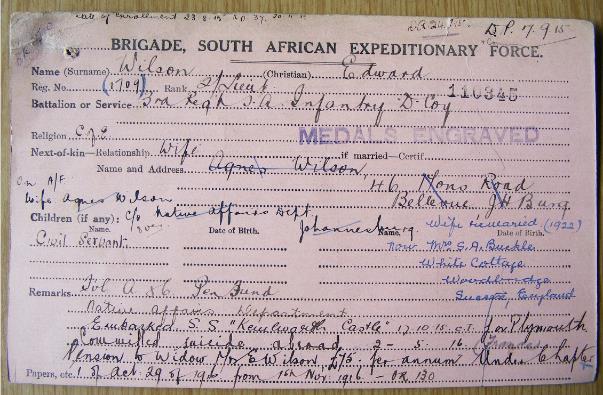 Date of enrollment 23-8-15 D.P. 37. 20.11.15
D.P. 7.9.15
BRIGADE, SOUTH AFRICAN EXPEDITIONARY FORCE.
Name (Surname) Wilson (Christian) Edward
Reg. No. (1709) Rank 2/Lieut 110345
Battalion or Service 3rd Regt S.A. Infantry D Coy
Religion C of E MEDALS ENGRAVED
Next-of-kin—Relationship. Wife if married—Certif.
Name and Address. Agnes Wilson,
46, Mons Road
On A/F Bellevue, JH Burg
Wife Agnes Wilson
Children (if any): c/o Native Affairs Dept Johannesburg Wife remarried (1922)
Name. Date of Birth. Name. Date of Birth.
Civil Servant now Mrs S.A. Buckle
White Cottage
Sussex, England
Remarks Pen Fund
Native Affairs Department
Embarked S.S. "Kenilworth Castle" 17.10.15 C.T. for Plymouth
Committed suicide abroad 2-5-16
Pension to Widow Mrs E Wilson, £75, per annum Under Chapter
Papers, etc. 1 of Act 29 of 1916 from 1st Nov, 1916 - OR 130